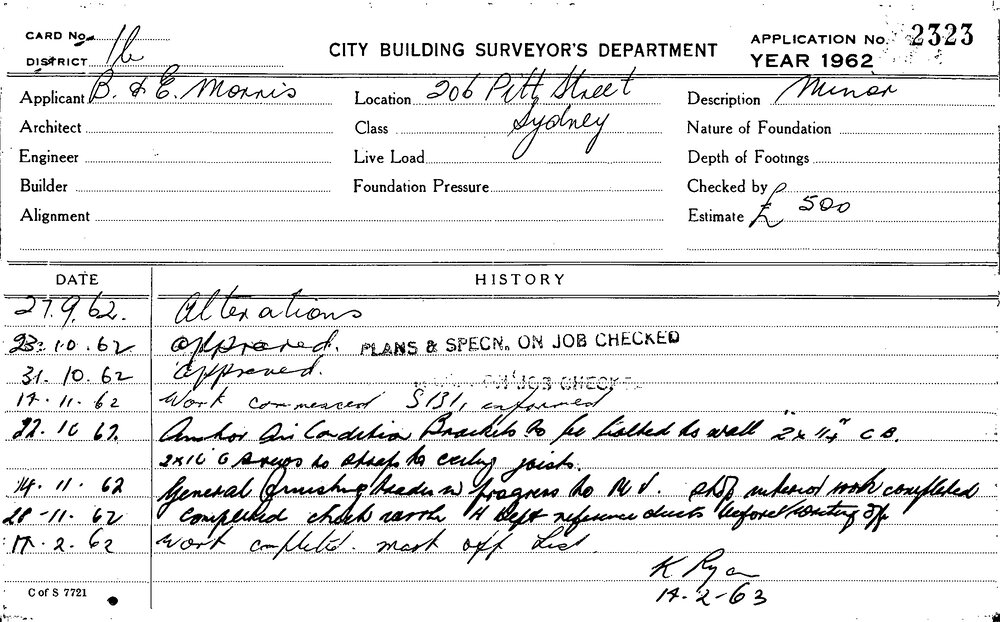 CARD No.
DISTRICT 16
CITY BUILDING SURVEYOR'S DEPARTMENT
APPLICATION No. 2323
YEAR 1962
Applicant B. & E. Morris
Location 206 Pitt Street
Sydney
Description Minor
Architect
Class
Nature of Foundation
Engineer
Live Load
Depth of Footings
Builder
Foundation Pressure
Checked by
Alignment
Estimate £ 500
DATE HISTORY
27.9.62. Alterations
23.10.62 approved. PLANS & SPECN. ON JOB CHECKED
31.10.62 approved. ON JOB CHECKED
14.11.62 Work commenced S131, informed
22.10.62. Anchor Air Condition Brackets to be bolted to wall 2" x 1/4" C B.
to straps to ceiling joists.
14.11.62 General finishing trades in progress to interior work completed
28-11.62 Completed check Dept reference ducts before
17.2.62 Work completed. mark off List.
K Ryan
14-2-63
C of S 7721